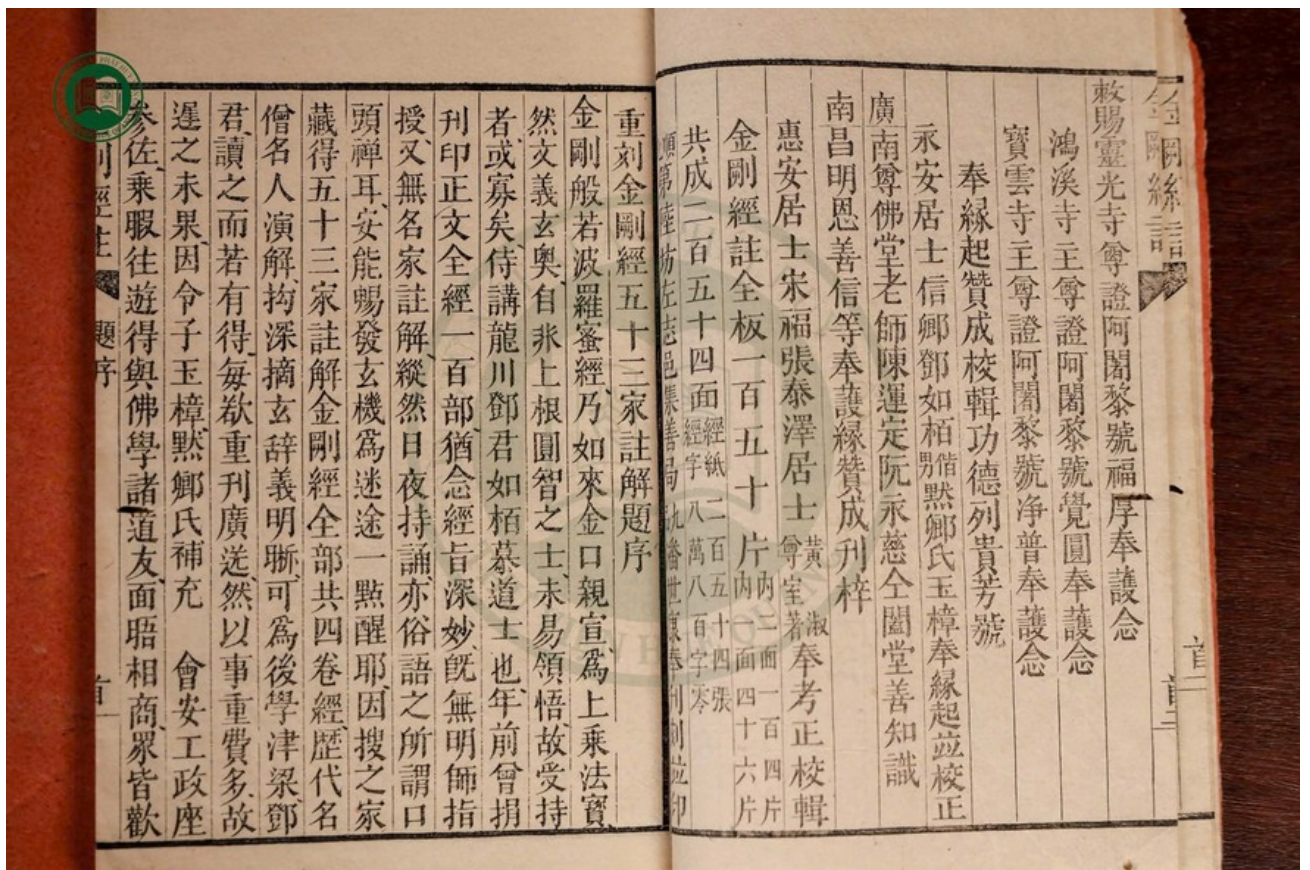 敕賜靈光寺尊證阿闍黎號福厚奉護念
鴻溪寺主尊證阿闍黎號覺圓奉護念
寶雲寺主尊證阿闍黎號净普奉護念
奉緣起贊成校輯功德列貴芳號
永安居士信鄉鄧如栢偕男黙鄉氏玉樟奉緣起並校正
廣南尊佛堂老師陳運定阮永慈仝闔堂善知識
南昌明恩善信等奉護緣贊成刊梓
惠安居士宋福張泰澤居士黃淑尊室著奉考正校輯
金剛經註全板一百五十片內二面一百四片內一面四十六片
共成二百五十四面經紙二百五十四張經字八萬八百字零
集善局潘世奉刊刻並印
重刻金剛經五十三家註解題序
金剛般若波羅蜜經、乃如來金口親宣、爲上乘法寶、
然文義玄奧、自非上根圓智之士、未易領悟、故受持
者、或寡矣、侍講龍川鄧君如栢慕道士也、年前曾捐
刊印正文全經一百部、猶念經旨深妙、旣無明師指
授、又無名家註解、縱然日夜持誦、亦俗語之所謂口
頭禪耳、安能賜發玄機、爲迷途一點醒耶、因搜之家
藏得五十三家註解金剛經全部共四卷經、歷代名
僧名人演解、抅深摘玄、辞義明晰、可爲後學津梁、鄧
君、讀之而若有得、每欲重刊廣送、然以事重費多、故
遲之未果、因令子玉樟、黙鄉氏補充　會安工政座
參佐、乘暇往遊、得與佛學諸道友、面晤相商、衆皆歡
題序
首一